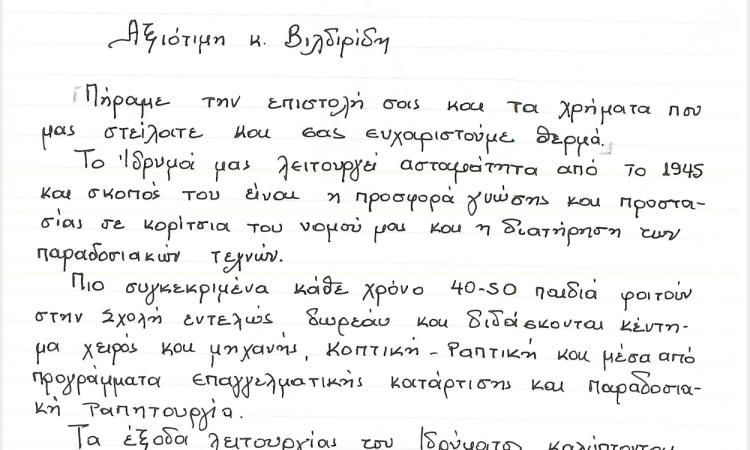 Αξιότιμη κ. Βιλδιρίδη
Πήραμε την επιστολή σας και τα χρήματα που
μας στείλατε και σας ευχαριστούμε θερμά.
Το Ίδρυμά μας λειτουργεί ασταμάτητα από το 1945
και σκοπός του είναι η προσφορά γνώσης και προστα-
σίας σε κορίτσια του νομού μας και η διατήρηση των
παραδοσιακών τεχνών.
Πιο συγκεκριμένα κάθε χρόνο 40-50 παιδιά φοιτούν
στην Σχολή εντελώς δωρεάν και διδάσκονται κέντη-
μα χειρός και μηχανής, Κοπτική - Ραπτική και μέσα από
προγράμματα επαγγελματικής κατάρτισης και παραδοσια-
κή Ταπητουργία.
Τα έξοδα λειτουργίας του Ιδρύματος καλύπτονται